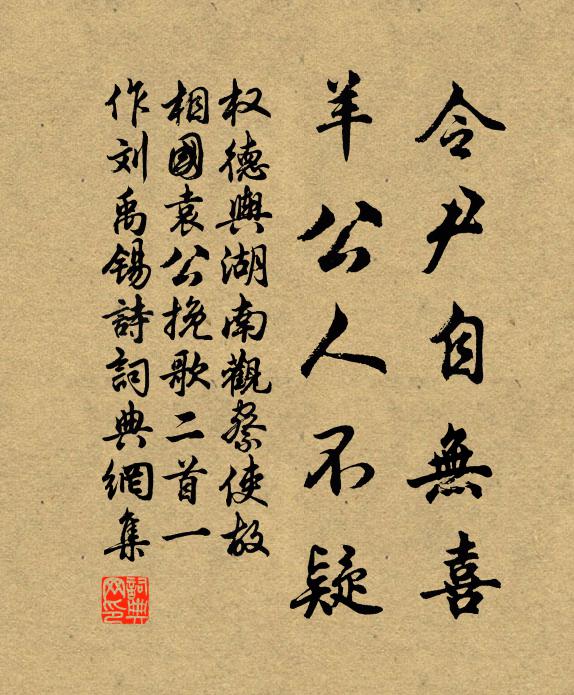 令尹自無喜
羊公人不疑
权德輿湖南觀察使故
相國袁公挽歌二首一
作刘禹锡詩詞典網集
詞典
网印